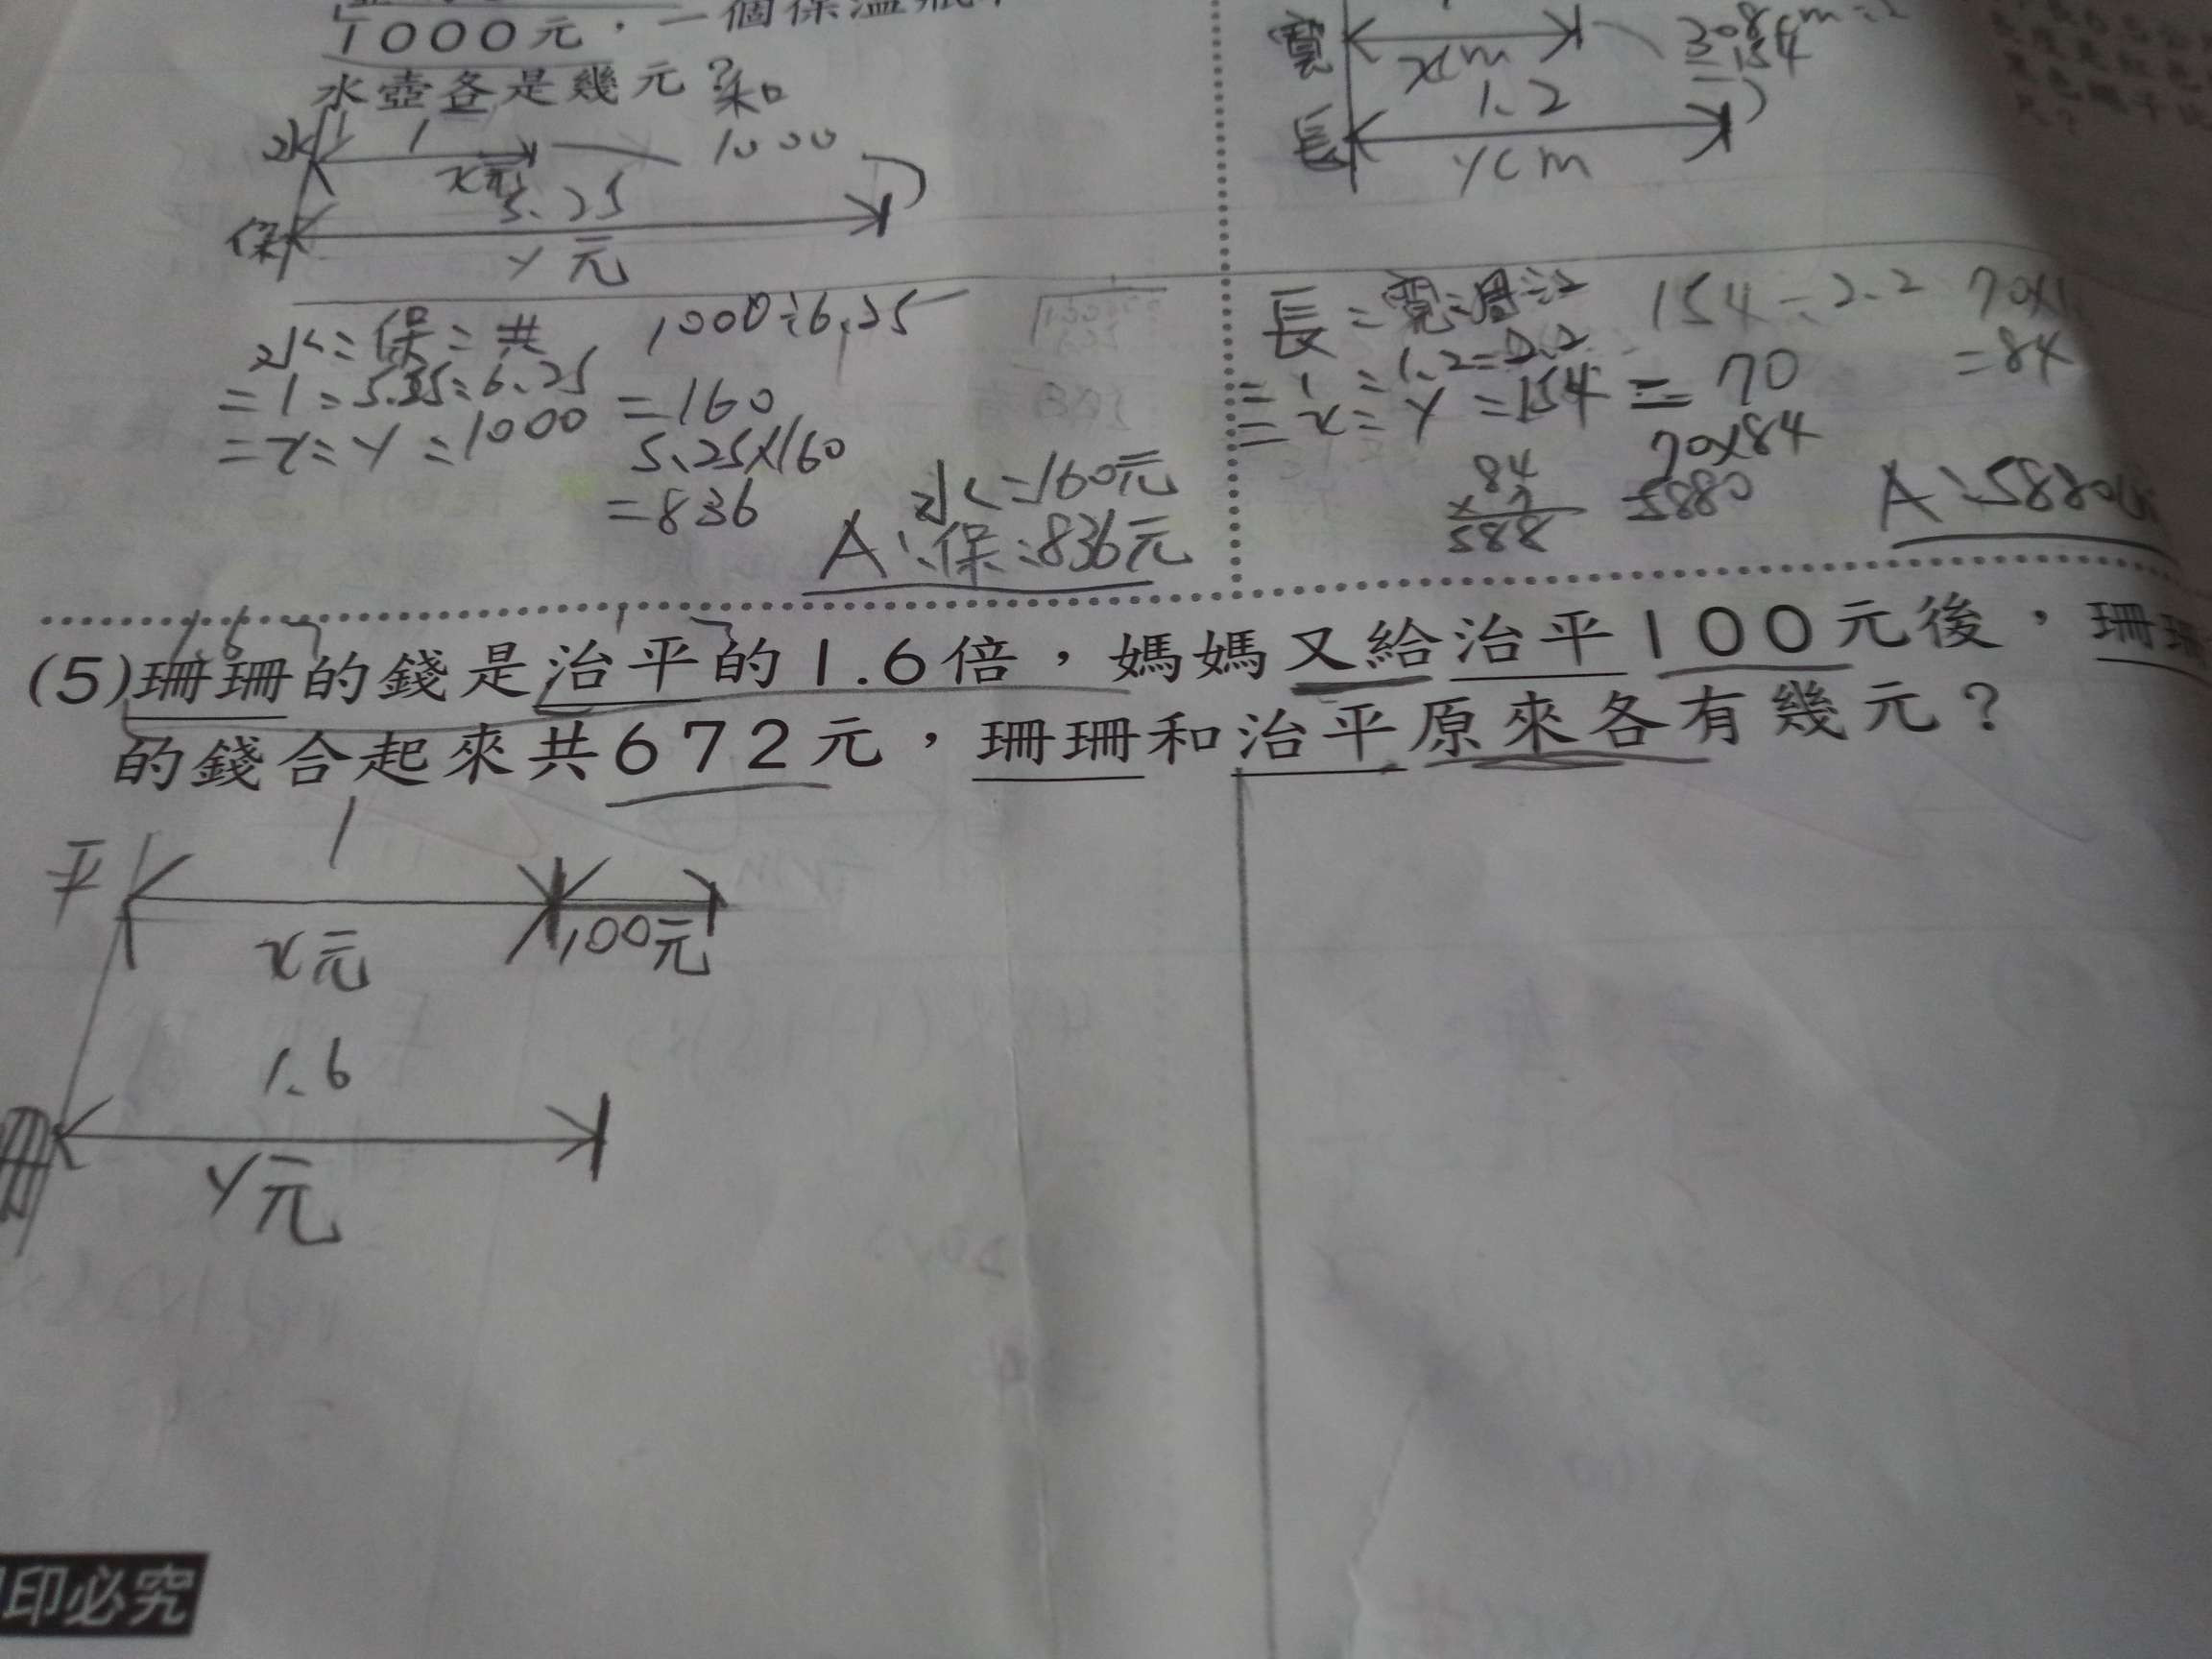 1000元，一個保溫瓶
水壺各是幾元？和
水 1 1000
x元
5.25
保 y元
水：保：共
=1：5.25：6.25
=x：y：1000
1000÷6.25
=160
5.25×160
=836
水：160元
A：保：836元
寬 xcm 308cm÷2
=154
1.2
長 ycm
長：寬：周÷2
=1：1.2：2.2
=x：y=154
154÷2.2
=70
70×1
=84
70×84
=5880
84
×7
588
A：5880
1.6 1
(5)珊珊的錢是治平的1.6倍，媽媽又給治平100元後，珊珊
的錢合起來共672元，珊珊和治平原來各有幾元？
平 1
x元 100元
1.6
珊 y元
印必究